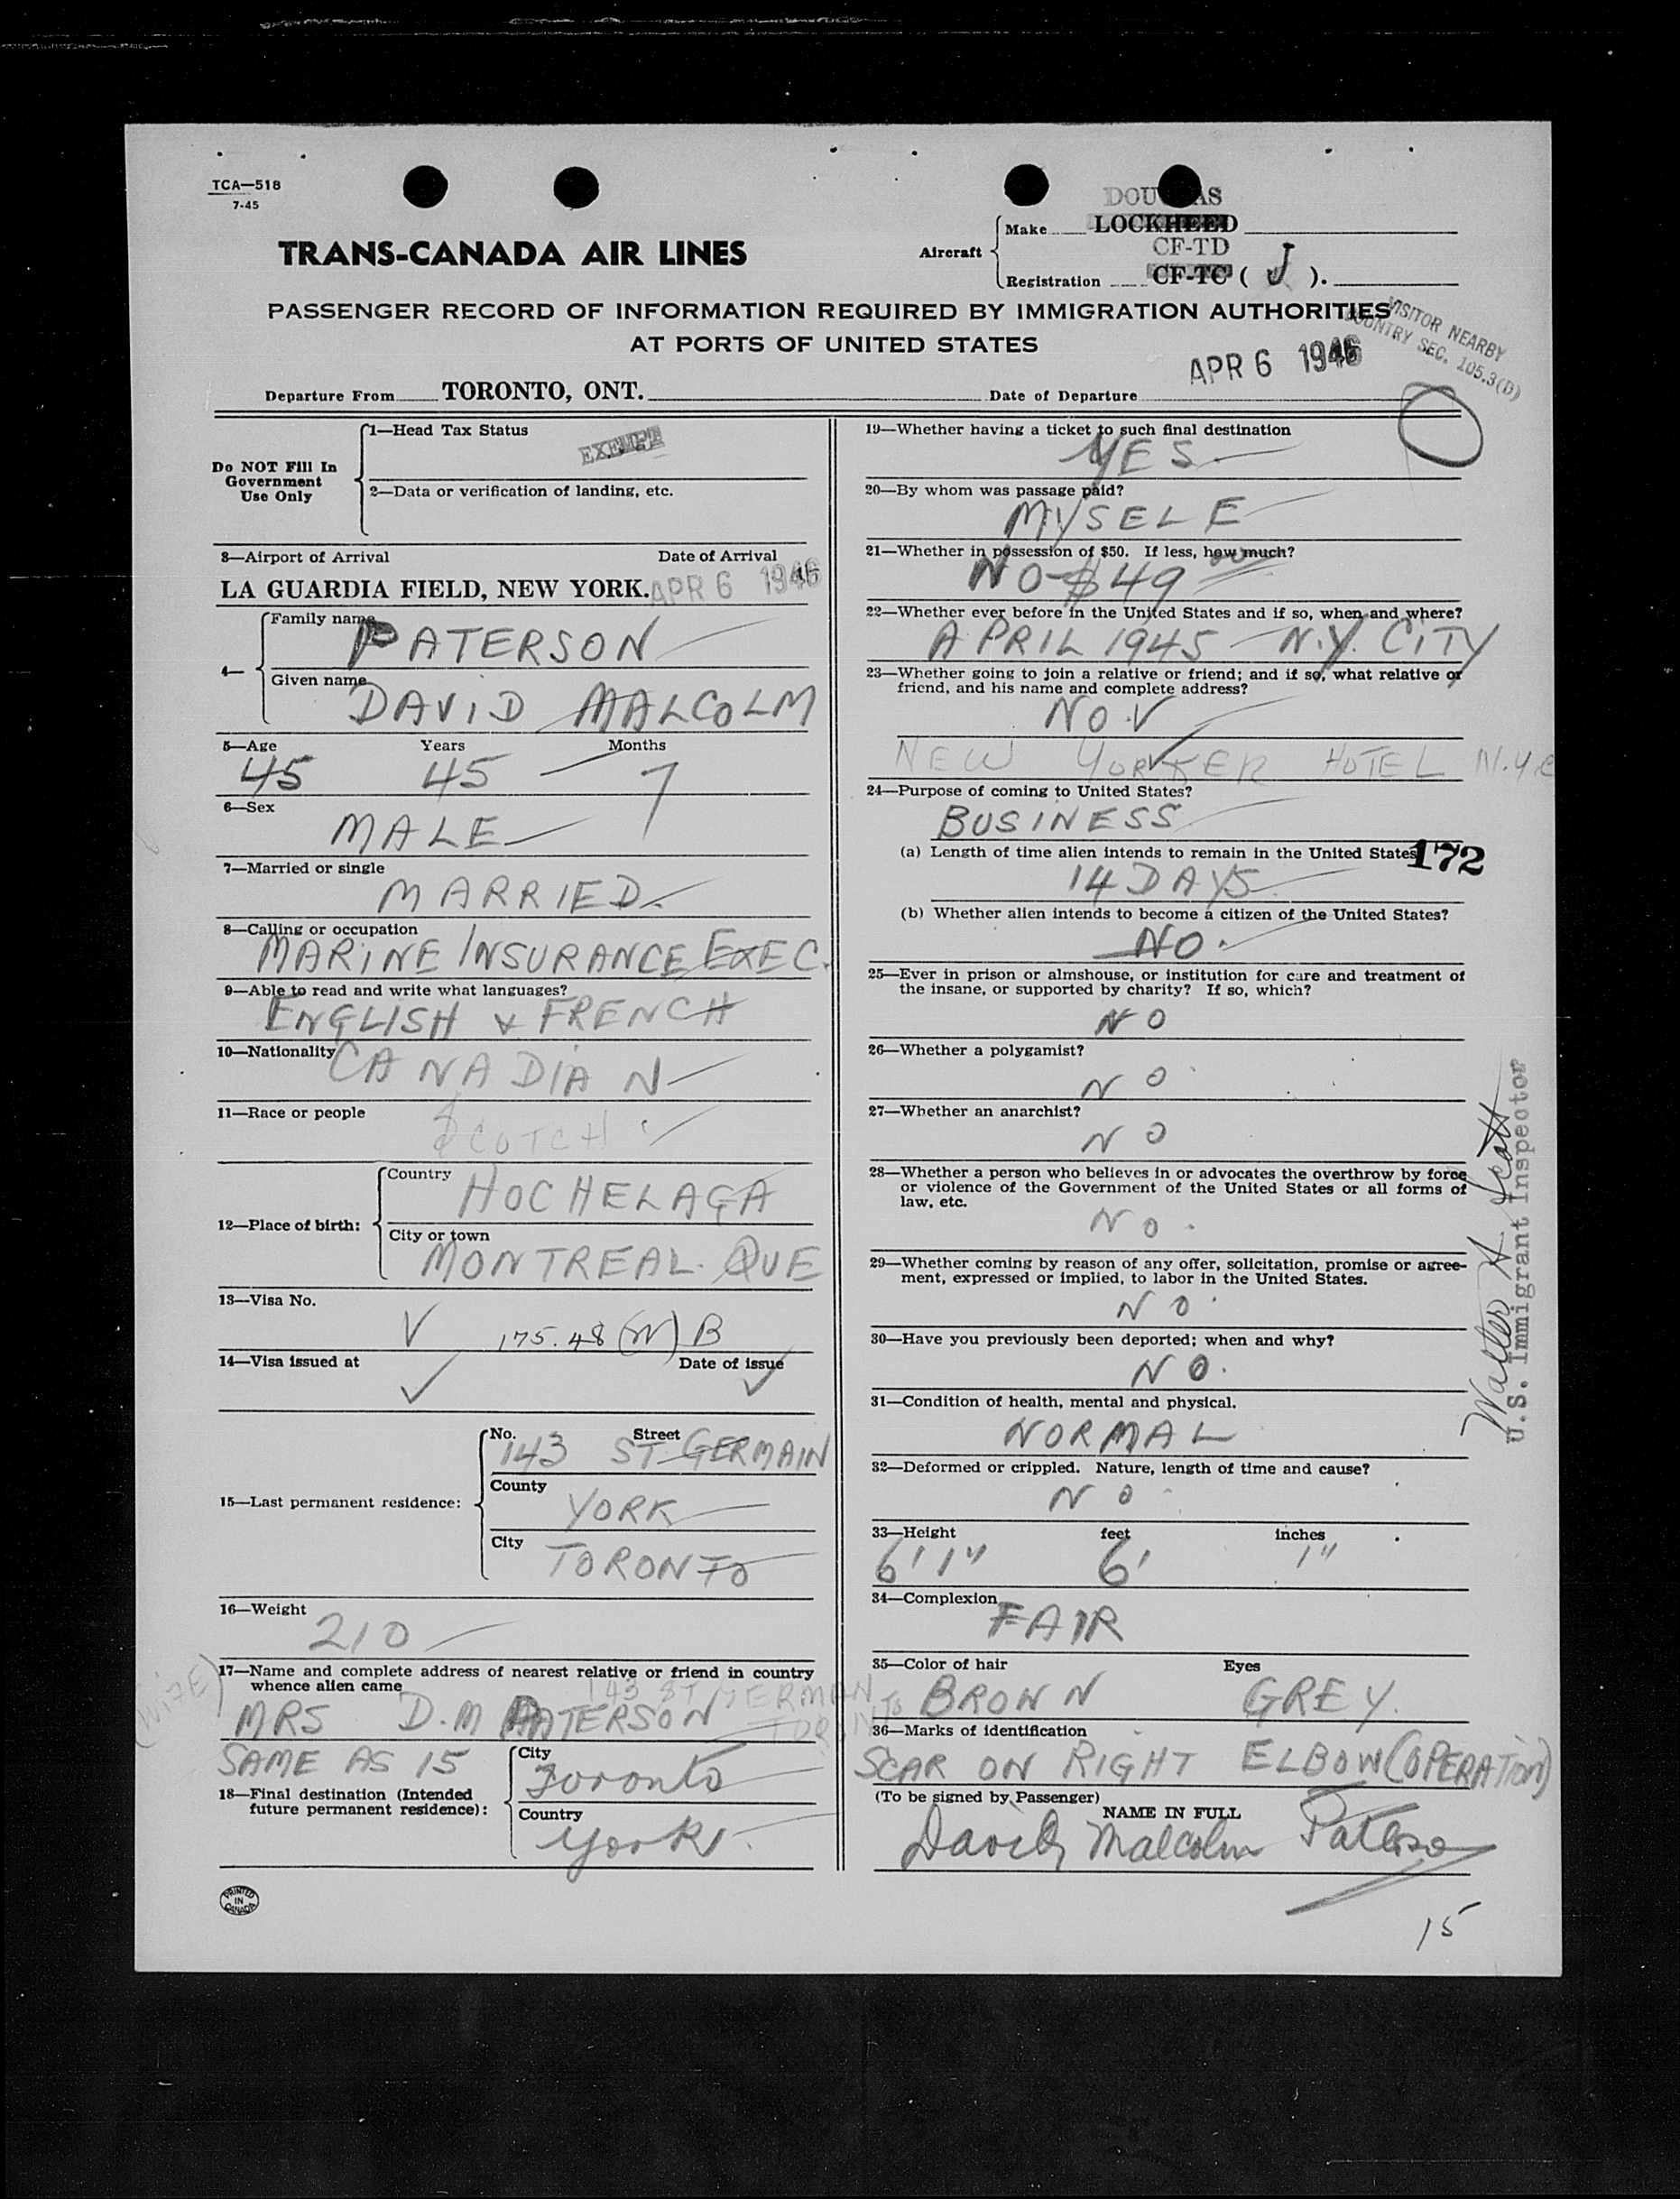 TCA—518
7-45
TRANS-CANADA AIR LINES
Aircraft
DOUGLAS
Make LOCKHEED
CF-TD
Registration CF-TC ( J ).
PASSENGER RECORD OF INFORMATION REQUIRED BY IMMIGRATION AUTHORITIES
AT PORTS OF UNITED STATES
VISITOR NEARBY
COUNTRY SEC. 105.3(D)
Departure From TORONTO, ONT. Date of Departure APR 6 1946
Do NOT Fill In
Government
Use Only
1—Head Tax Status EXEMPT
2—Data or verification of landing, etc.
3—Airport of Arrival Date of Arrival
LA GUARDIA FIELD, NEW YORK. APR 6 1946
4—
Family name PATERSON
Given name DAVID MALCOLM
5—Age Years Months
45 45 7
6—Sex
MALE
7—Married or single
MARRIED
8—Calling or occupation
MARINE INSURANCE EXEC.
9—Able to read and write what languages?
ENGLISH & FRENCH
10—Nationality CANADIAN
11—Race or people
SCOTCH
12—Place of birth:
Country HOCHELAGA
City or town
MONTREAL. QUE
13—Visa No.
175.48 (W) B
14—Visa issued at Date of issue
15—Last permanent residence:
No. Street
143 ST. GERMAIN
County
YORK
City TORONTO
16—Weight
210
17—Name and complete address of nearest relative or friend in country
whence alien came
(WIFE) 143 ST GERMAN
MRS D.M PATERSON TORONTO
SAME AS 15
18—Final destination (Intended
future permanent residence):
City
Toronto
Country
York
PRINTED
IN
CANADA
19—Whether having a ticket to such final destination
YES
20—By whom was passage paid?
MYSELF
21—Whether in possession of $50. If less, how much?
NO $49 00
22—Whether ever before in the United States and if so, when and where?
APRIL 1945 N.Y. CITY
23—Whether going to join a relative or friend; and if so, what relative or
friend, and his name and complete address?
NO.
NEW YORKER HOTEL N.Y.C
24—Purpose of coming to United States?
BUSINESS
(a) Length of time alien intends to remain in the United States 172
14 DAYS
(b) Whether alien intends to become a citizen of the United States?
NO.
25—Ever in prison or almshouse, or institution for care and treatment of
the insane, or supported by charity? If so, which?
NO
26—Whether a polygamist?
NO
27—Whether an anarchist?
NO
28—Whether a person who believes in or advocates the overthrow by force
or violence of the Government of the United States or all forms of
law, etc.
NO.
29—Whether coming by reason of any offer, solicitation, promise or agree-
ment, expressed or implied, to labor in the United States.
NO.
30—Have you previously been deported; when and why?
NO.
31—Condition of health, mental and physical.
NORMAL
32—Deformed or crippled. Nature, length of time and cause?
NO
33—Height feet inches
6'1" 6' 1"
34—Complexion
FAIR
35—Color of hair Eyes
BROWN GREY.
36—Marks of identification
SCAR ON RIGHT ELBOW (OPERATION)
(To be signed by Passenger)
NAME IN FULL
David Malcolm Paterson
15
Walter H Scott
U.S. Immigrant Inspector